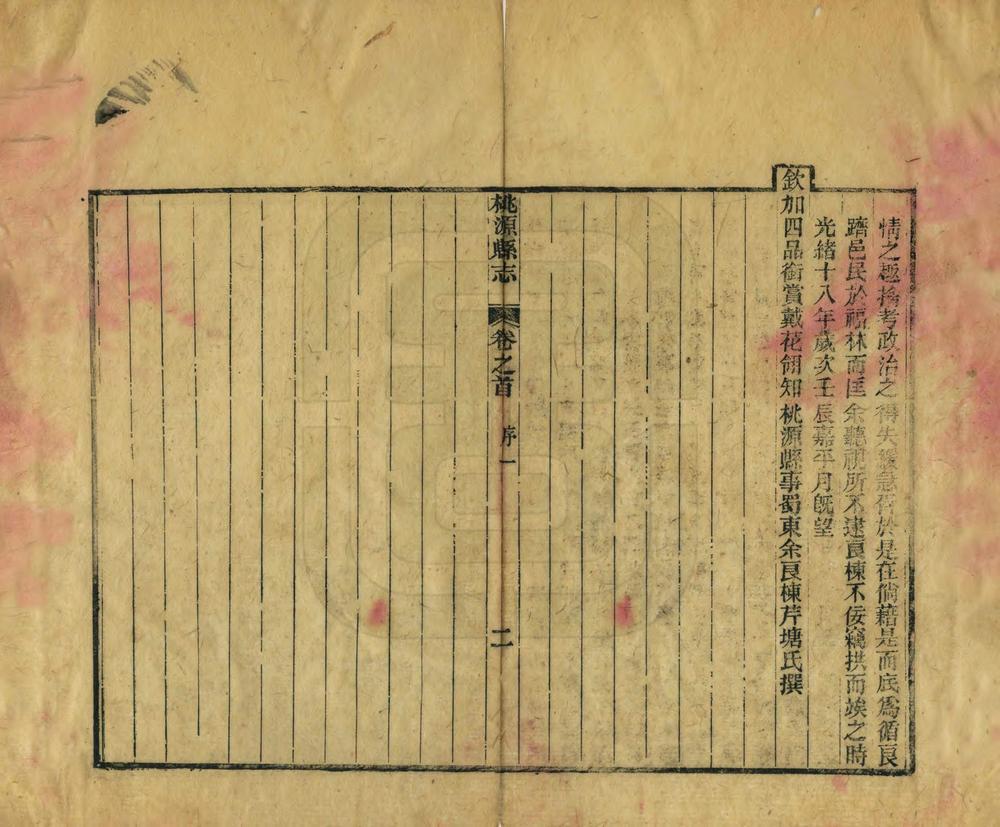 情之極摧考政治之得失緩急胥於是在倘藉是而底爲循良
躋邑民於福林而匡余聽視所不逮良棟不佞竊拱而竢之時
光緒十八年歲次壬辰嘉平月既望
欽加四品銜賞戴花翎知桃源縣事蜀東余良棟芹塘氏撰
桃源縣志
卷之首
序一
二